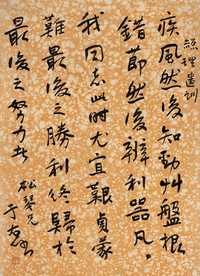 總理遺訓
疾風然後知勁艸盤根
錯節然後辨利器凡
我同志此時尤宜艱貞蒙
難最後之勝利終歸於
最後之努力者
松琴兄
于右任